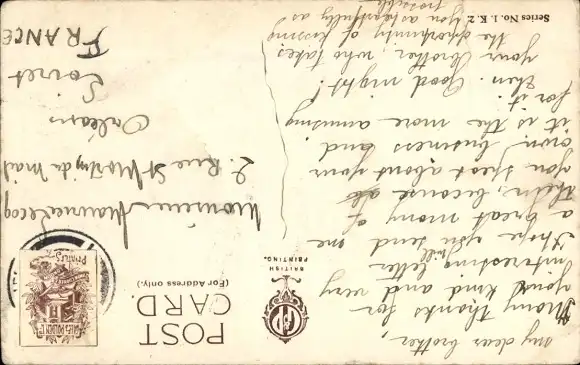 POST
CARD.
(For Address only.)
BRITISH
PRINTING.
My dear brother,
Many thanks for
your kind and very
interesting letter
I hope you will send me
a great many of
them, because
you speak about your
own business and
it is the more amusing
for it.
then. Good night!
your brother, who takes
the opportunity of kissing
you as tastefully as
possible
Monsieur Maurice Lecoq
2. Rue St Martin du Mail
Orléans
Loiret
FRANCE
Series No. 1. K. 2.